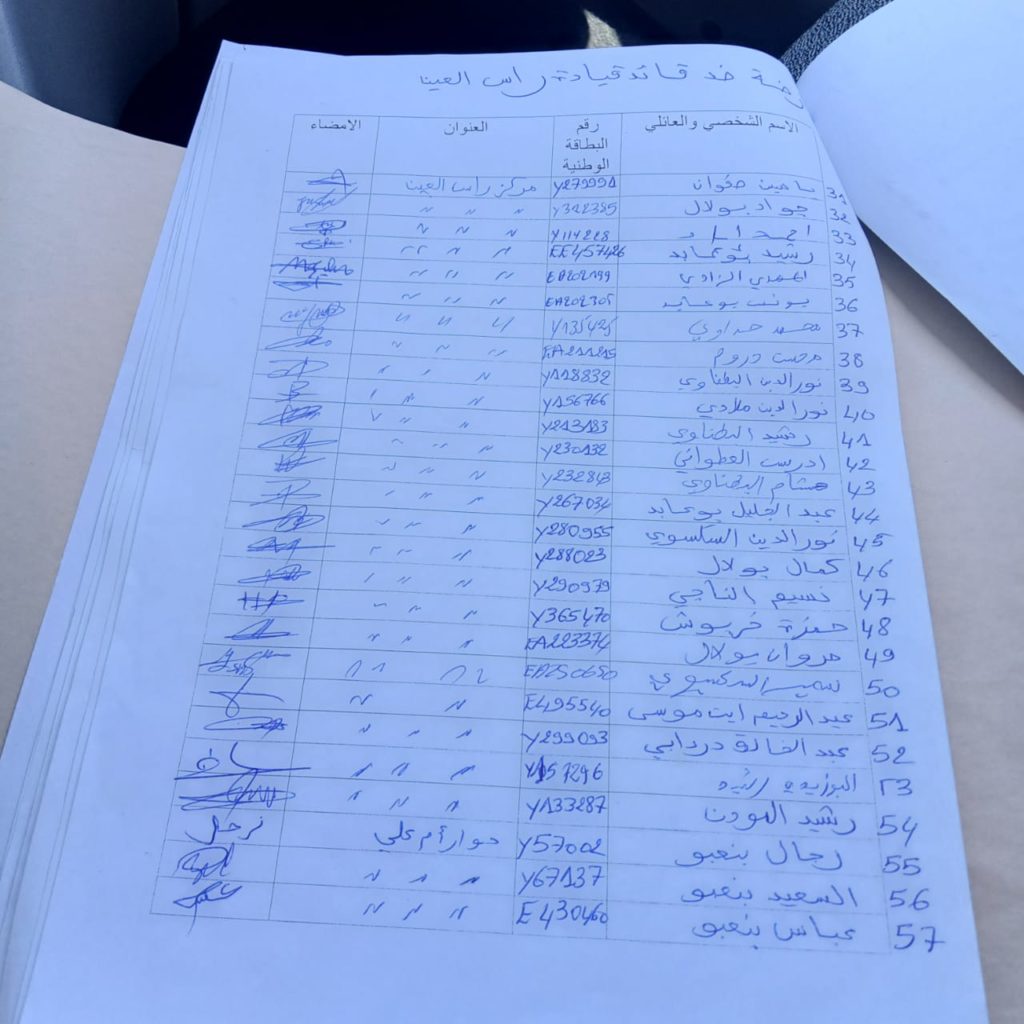 ضد قائد قيادة راس العين
الاسم الشخصي والعائلي رقم البطاقة الوطنية العنوان الامضاء
31 ياسين صفوان Y279991 مركز راس العين
32 جواد بولال Y322385 " " "
33 احمد Y114228 " " "
34 رشيد بوعابد EE457426 " " "
35 المهدي الزادي EA202199 " " "
36 يونس بوعابد EA202305 " " "
37 محمد حداوي Y135425 " " "
38 EA211215 " " "
39 نورالدين البطناوي Y118832 " " "
40 نورالدين ملادي Y156766 " " "
41 رشيد البطناوي Y213183 " " "
42 ادريس العطواني Y230132 " " "
43 هشام البطناوي Y232843 " " "
44 عبد الجليل بوعابد Y267034 " " "
45 نورالدين السكسوي Y280955 " " "
46 كمال بولال Y288023 " " "
47 نسيم الناجي Y290979 " " "
48 حمزة خربوش Y365470 " " "
49 مروان بولال EA223374 " " "
50 سمير السكسوي " "
51 عبد الرحيم ايت موسى E495540 " "
52 عبد الخالق دردابي Y299093 " " "
53 Y157296 " " "
54 رشيد المودن Y133287 " " "
55 رجال بنعبو Y57002 دوار أم علي
56 السعيد بنعبو Y67137 " " "
57 عباس بنعبو E430460 " " "